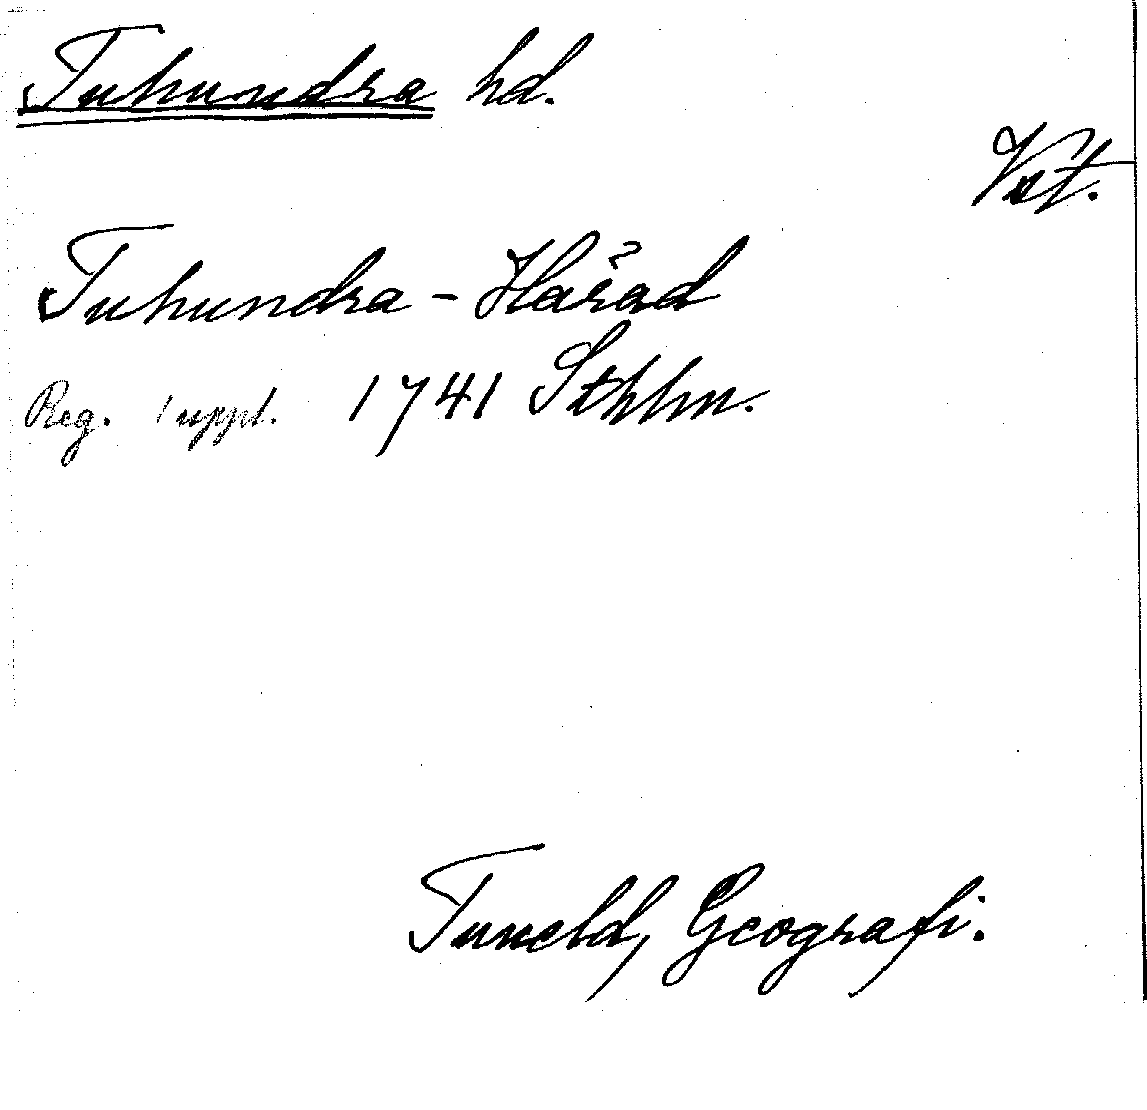 Tuhundra hd.
Vst.
Tuhundra - Härad
Reg. 1 uppl. 1741 Sthlm.
Tuneld, Geografi.